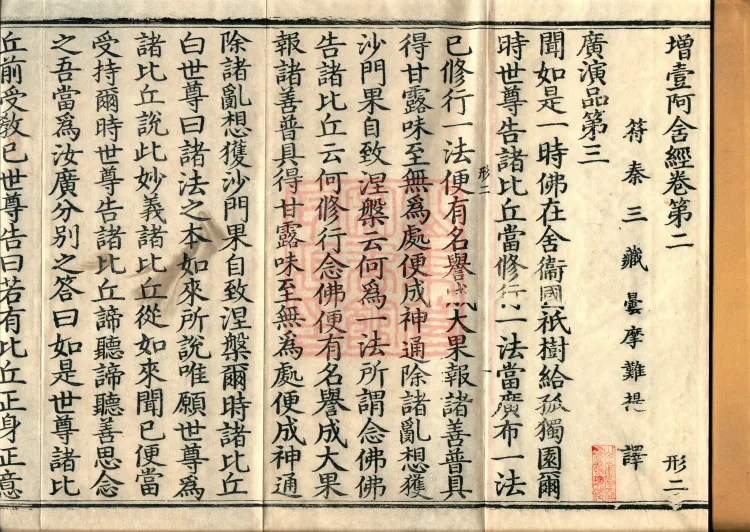 增壹阿舍經卷第二 形二
符秦三藏曇摩難提 譯
廣演品第三
聞如是一時佛在舍衞國祇樹給孤獨園爾
時世尊告諸比丘當修行一法當廣布一法
形二
已修行一法便有名譽成大果報諸善普具
得甘露味至無爲處便成神通除諸亂想獲
沙門果自致涅槃云何爲一法所謂念佛佛
告諸比丘云何修行念佛便有名譽成大果
報諸善普具得甘露味至無爲處便成神通
除諸亂想獲沙門果自致涅槃爾時諸比丘
白世尊曰諸法之本如來所說唯願世尊爲
諸比丘說此妙義諸比丘從如來聞已便當
受持爾時世尊告諸比丘諦聽諦聽善思念
之吾當爲汝廣分別之答曰如是世尊諸比
丘前受教已世尊告曰若有比丘正身正意